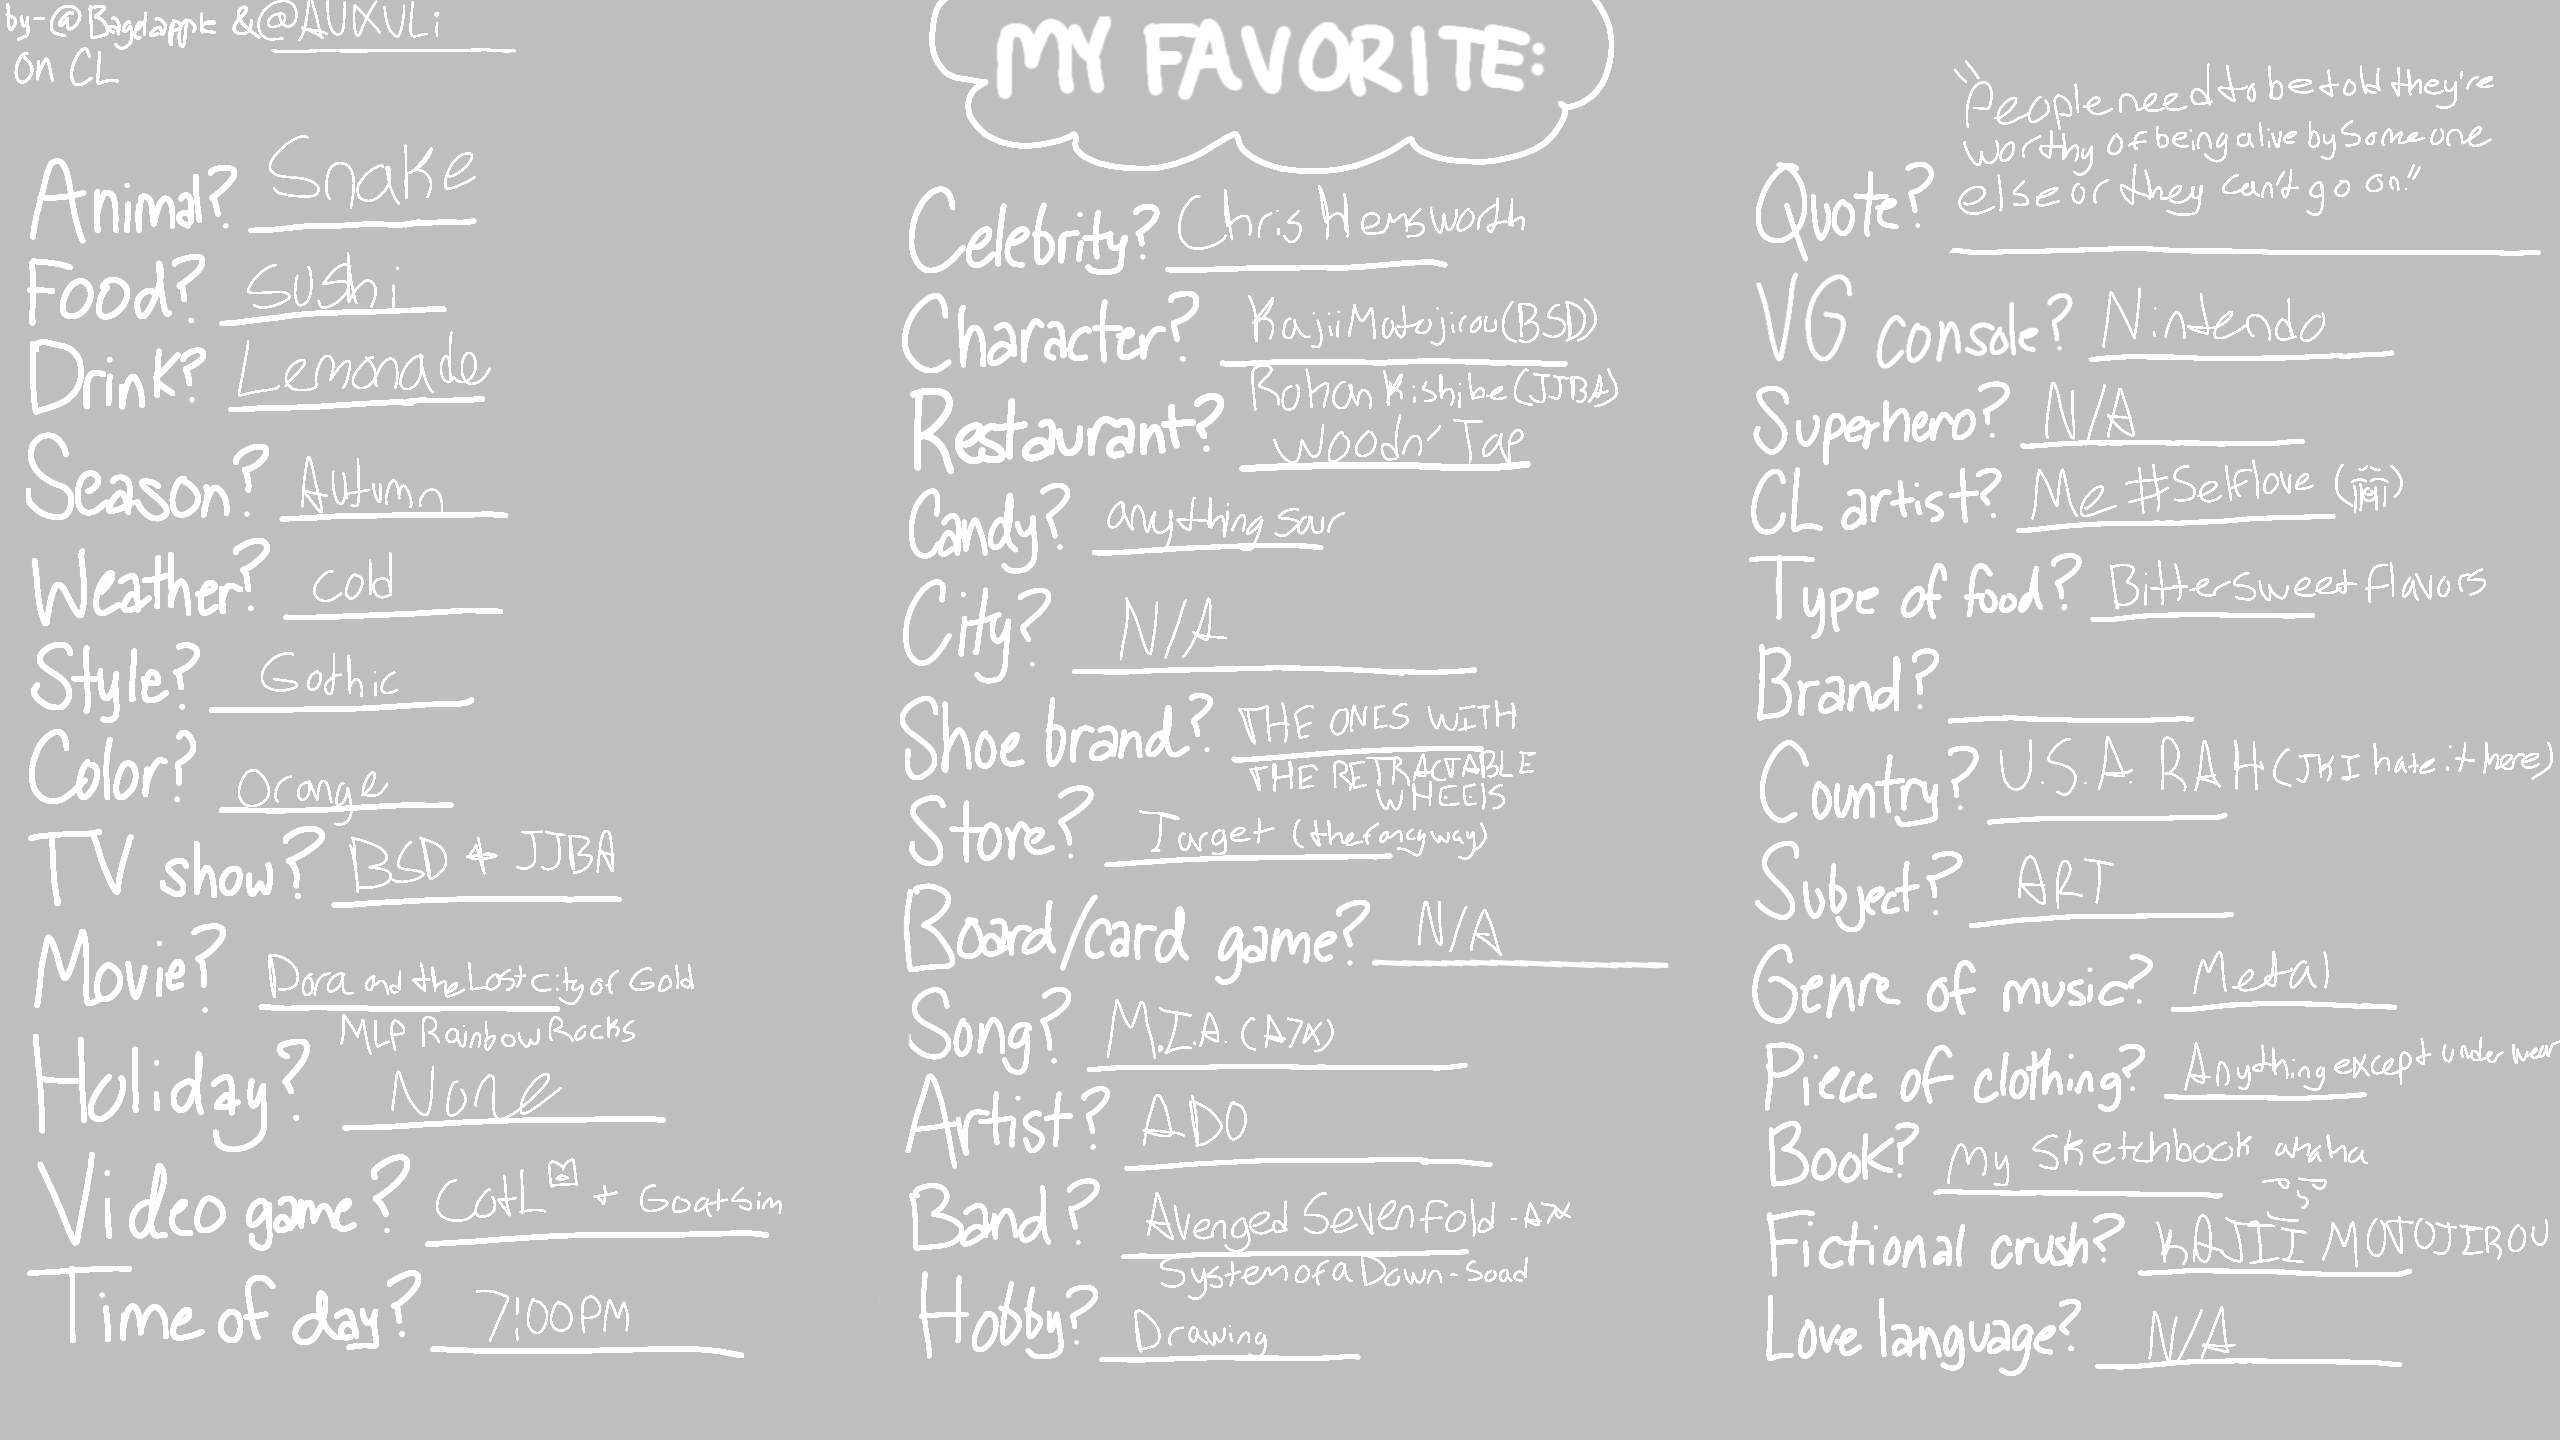 by-@Bagelapple &@AUXULi
on CL
MY FAVORITE:
Animal? Snake
Food? Sushi
Drink? Lemonade
Season? Autumn
Weather? cold
Style? Gothic
Color? Orange
TV show? BSD + JJBA
Movie? Dora and the Lost City of Gold
MLP Rainbow Rocks
Holiday? None
Video game? CotL + Goatsim
Time of day? 7:00PM
Celebrity? Chris Hemsworth
Character? Kajii Motojirou (BSD)
Rohan Kishibe (JJBA)
Restaurant? Woodn' Tap
Candy? anything sour
City? N/A
Shoe brand? THE ONES WITH
THE RETRACTABLE
WHEELS
Store? Target (the fancy way)
Board/card game? N/A
Song? M.I.A. (A7X)
Artist? ADO
Band? Avenged Sevenfold - A7X
System of a Down - Soad
Hobby? Drawing
"People need to be told they're
worthy of being alive by someone
Quote? else or they can't go on."
VG console? Nintendo
Superhero? N/A
CL artist? Me #Selflove
Type of food? Bittersweet flavors
Brand?
Country? U.S.A. RAH (JK I hate it here)
Subject? ART
Genre of music? Metal
Piece of clothing? Anything except underwear
Book? My Sketchbook ahaha
Fictional crush? KAJII MOTOJIROU
Love language? N/A